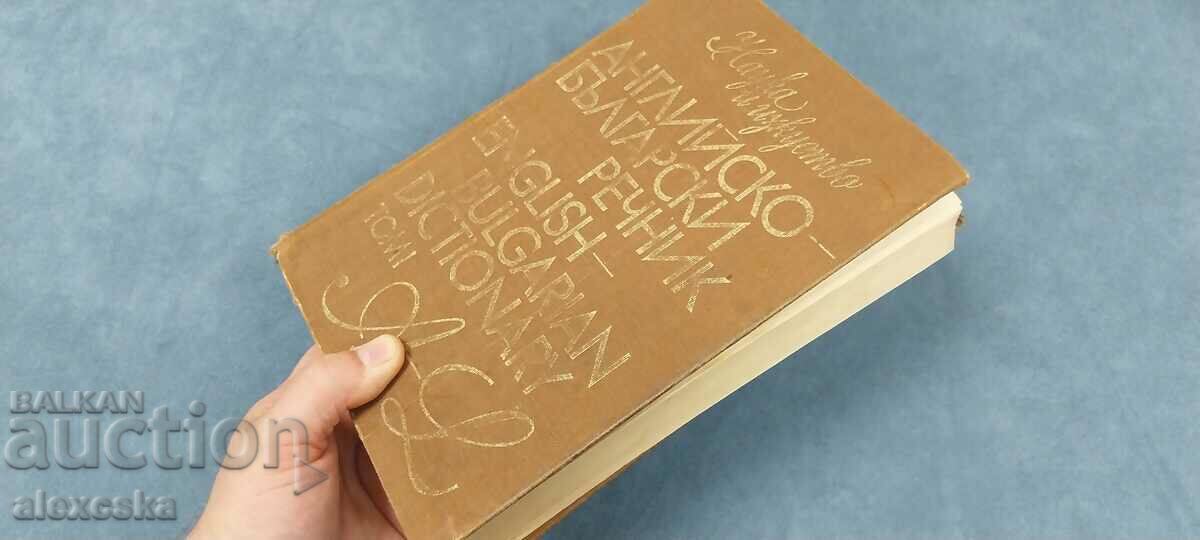 Наука
и изкуство
АНГЛИЙСКО–
БЪЛГАРСКИ
РЕЧНИК
ENGLISH–
BULGARIAN
DICTIONARY
ТОМ I
A-L
BALKAN
auction
alexeska